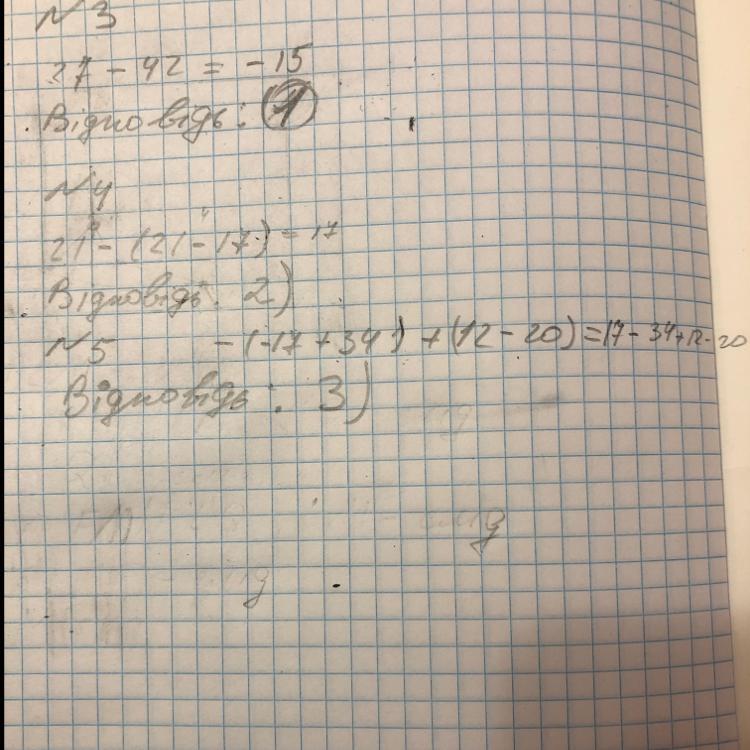 №3
27 - 42 = -15
Відповідь: 1
№4
21 - (21 - 17) = 17
Відповідь: 2)
№5 -(-17 + 34) + (12 - 20) = 17 - 34 + 12 - 20
Відповідь: 3)